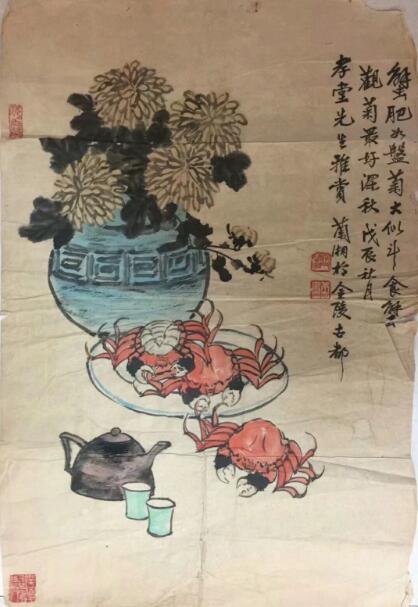 蟹肥如盤菊大似斗食蟹
觀菊最好深秋戊辰秋月
孝堂先生雅賞 蘭湘於金陵古都